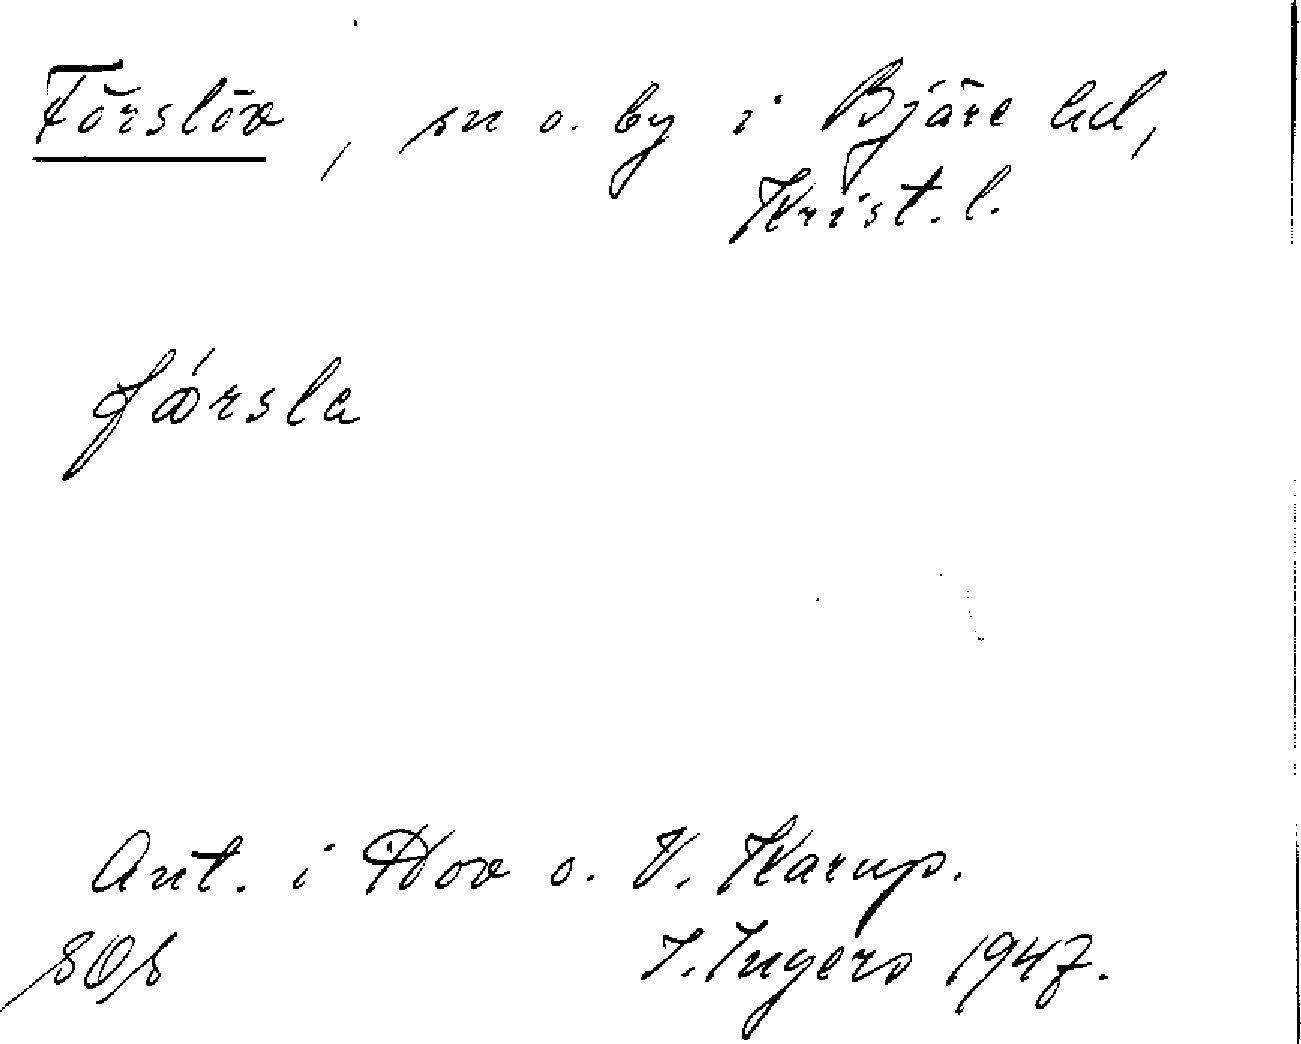 Förslöv, sn o. by i Bjäre hd,
Krist. l.
fǿrsla
Ant. i Hov o. V. Karup.
SOS
I. Ingers 1947.